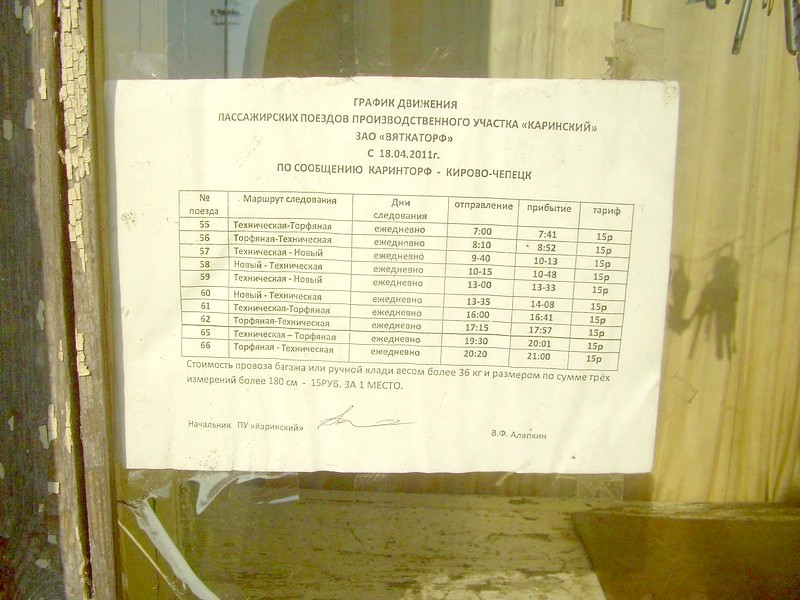 ГРАФИК ДВИЖЕНИЯ
ПАССАЖИРСКИХ ПОЕЗДОВ ПРОИЗВОДСТВЕННОГО УЧАСТКА «КАРИНСКИЙ»
ЗАО «ВЯТКАТОРФ»
С 18.04.2011г.
ПО СООБЩЕНИЮ КАРИНТОРФ - КИРОВО-ЧЕПЕЦК
№ поезда Маршрут следования Дни следования отправление прибытие тариф
55 Техническая-Торфяная ежедневно 7:00 7:41 15р
56 Торфяная-Техническая ежедневно 8:10 8:52 15р
57 Техническая - Новый ежедневно 9-40 10-13 15р
58 Новый - Техническая ежедневно 10-15 10-48 15р
59 Техническая - Новый ежедневно 13-00 13-33 15р
60 Новый - Техническая ежедневно 13-35 14-08 15р
61 Техническая-Торфяная ежедневно 16:00 16:41 15р
62 Торфяная-Техническая ежедневно 17:15 17:57 15р
65 Техническая – Торфяная ежедневно 19:30 20:01 15р
66 Торфяная - Техническая ежедневно 20:20 21:00 15р
Стоимость провоза багажа или ручной клади весом более 36 кг и размером по сумме трёх
измерений более 180 см - 15РУБ. ЗА 1 МЕСТО.
Начальник ПУ «Каринский»
В.Ф. Аляпкин